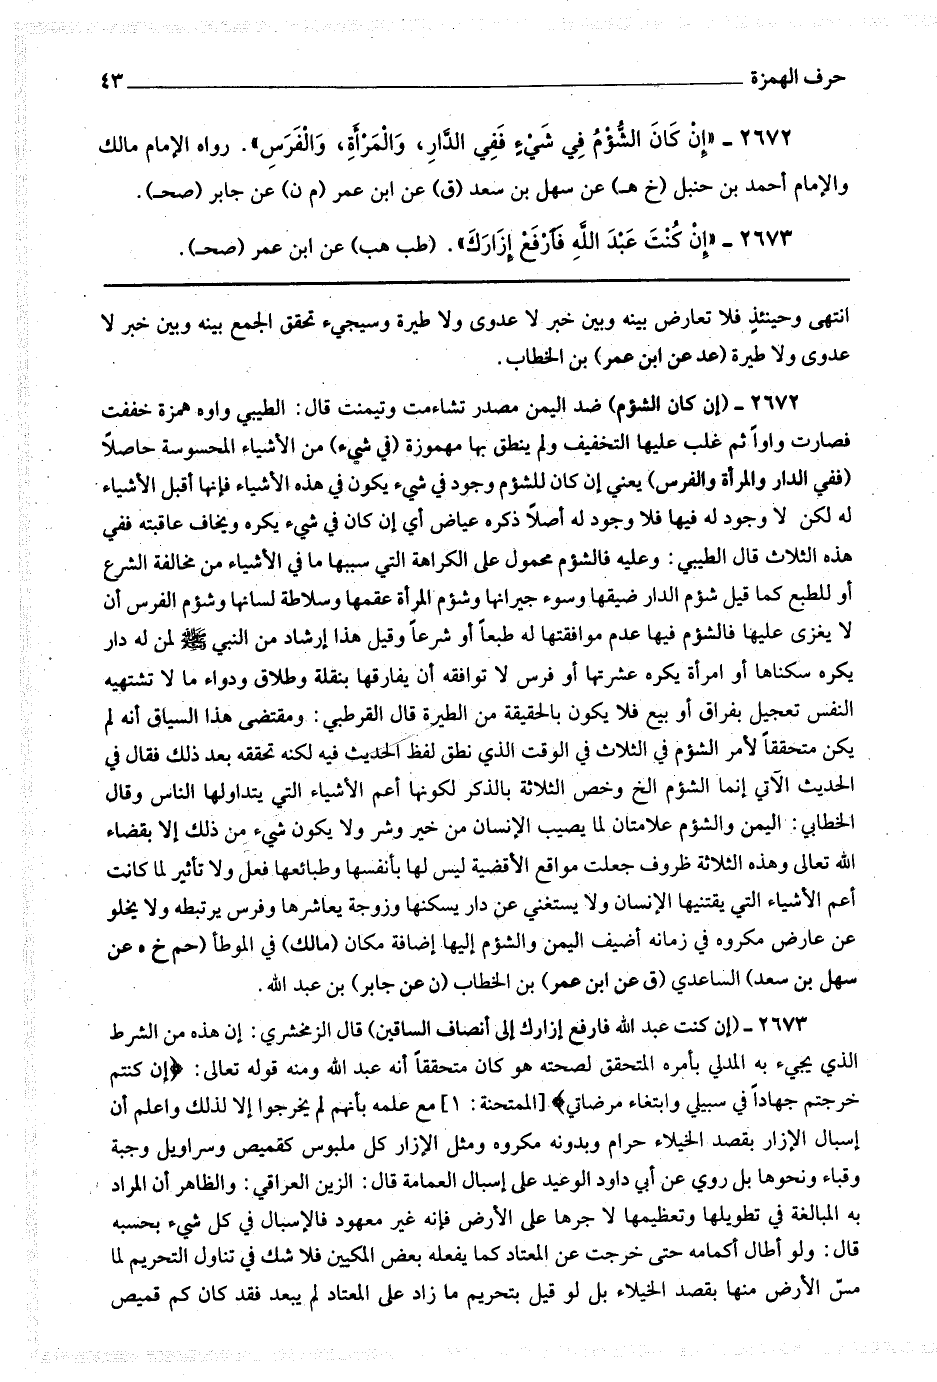 حرف الهمزة ٤٣
٢٦٧٢ ـ «إِنْ كَانَ الشُّؤْمُ فِي شَيْءٍ فَفِي الدَّارِ، وَالْمَرْأَةِ، وَالْفَرَسِ». رواه الإمام مالك
والإمام أحمد بن حنبل (خ هـ) عن سهل بن سعد (ق) عن ابن عمر (م ن) عن جابر (صحـ).
٢٦٧٣ ـ «إِنْ كُنْتَ عَبْدَ اللَّهِ فَآرْفَعْ إِزَارَكَ». (طب هب) عن ابن عمر (صحـ).
انتهى وحينئذٍ فلا تعارض بينه وبين خبر لا عدوى ولا طيرة وسيجيء تحقق الجمع بينه وبين خبر لا
عدوى ولا طيرة (عد عن ابن عمر) بن الخطاب.
٢٦٧٢ ـ (إن كان الشؤم) ضد اليمن مصدر تشاءمت وتيمنت قال: الطيبي واوه همزة خففت
فصارت واواً ثم غلب عليها التخفيف ولم ينطق بها مهموزة (في شيء) من الأشياء المحسوسة حاصلاً
(ففي الدار والمرأة والفرس) يعني إن كان للشؤم وجود في شيء يكون في هذه الأشياء فإنها أقبل الأشياء
له لكن لا وجود له فيها فلا وجود له أصلاً ذكره عياض أي إن كان في شيء يكره ويخاف عاقبته ففي
هذه الثلاث قال الطيبي: وعليه فالشؤم محمول على الكراهة التي سببها ما في الأشياء من مخالفة الشرع
أو للطبع كما قيل شؤم الدار ضيقها وسوء جيرانها وشؤم المرأة عقمها وسلاطة لسانها وشؤم الفرس أن
لا يغزى عليها فالشؤم فيها عدم موافقتها له طبعاً أو شرعاً وقيل هذا إرشاد من النبي ﷺ لمن له دار
يكره سكناها أو امرأة يكره عشرتها أو فرس لا توافقه أن يفارقها بنقلة وطلاق ودواء ما لا تشتهيه
النفس تعجيل بفراق أو بيع فلا يكون بالحقيقة من الطيرة قال القرطبي: ومقتضى هذا السياق أنه لم
يكن متحققاً لأمر الشؤم في الثلاث في الوقت الذي نطق لفظ الحديث فيه لكنه تحققه بعد ذلك فقال في
الحديث الآتي إنما الشؤم الخ وخص الثلاثة بالذكر لكونها أعم الأشياء التي يتداولها الناس وقال
الخطابي: اليمن والشؤم علامتان لما يصيب الإنسان من خير وشر ولا يكون شيء من ذلك إلا بقضاء
الله تعالى وهذه الثلاثة ظروف جعلت مواقع الأقضية ليس لها بأنفسها وطبائعها فعل ولا تأثير لما كانت
أعم الأشياء التي يقتنيها الإنسان ولا يستغني عن دار يسكنها وزوجة يعاشرها وفرس يرتبطه ولا يخلو
عن عارض مكروه في زمانه أضيف اليمن والشؤم إليها إضافة مكان (مالك) في الموطأ (حم خ ه عن
سهل بن سعد) الساعدي (ق عن ابن عمر) بن الخطاب (ن عن جابر) بن عبد الله.
٢٦٧٣ ـ (إن كنت عبد الله فارفع إزارك إلى أنصاف الساقين) قال الزمخشري: إن هذه من الشرط
الذي يجيء به المدلي بأمره المتحقق لصحته هو كان متحققاً أنه عبد الله ومنه قوله تعالى: ﴿إن كنتم
خرجتم جهاداً في سبيلي وابتغاء مرضاتي﴾ [الممتحنة: ١] مع علمه بأنهم لم يخرجوا إلا لذلك واعلم أن
إسبال الإزار بقصد الخيلاء حرام وبدونه مكروه ومثل الإزار كل ملبوس كقميص وسراويل وجبة
وقباء ونحوها بل روي عن أبي داود الوعيد على إسبال العمامة قال: الزين العراقي: والظاهر أن المراد
به المبالغة في تطويلها وتعظيمها لا جرها على الأرض فإنه غير معهود فالإسبال في كل شيء بحسبه
قال: ولو أطال أكمامه حتى خرجت عن المعتاد كما يفعله بعض المكيين فلا شك في تناول التحريم لما
مسّ الأرض منها بقصد الخيلاء بل لو قيل بتحريم ما زاد على المعتاد لم يبعد فقد كان كم قميص